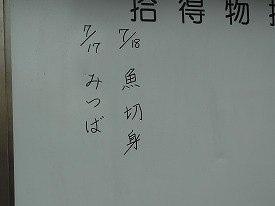 拾得物
7/18 魚切身
7/17 みつば